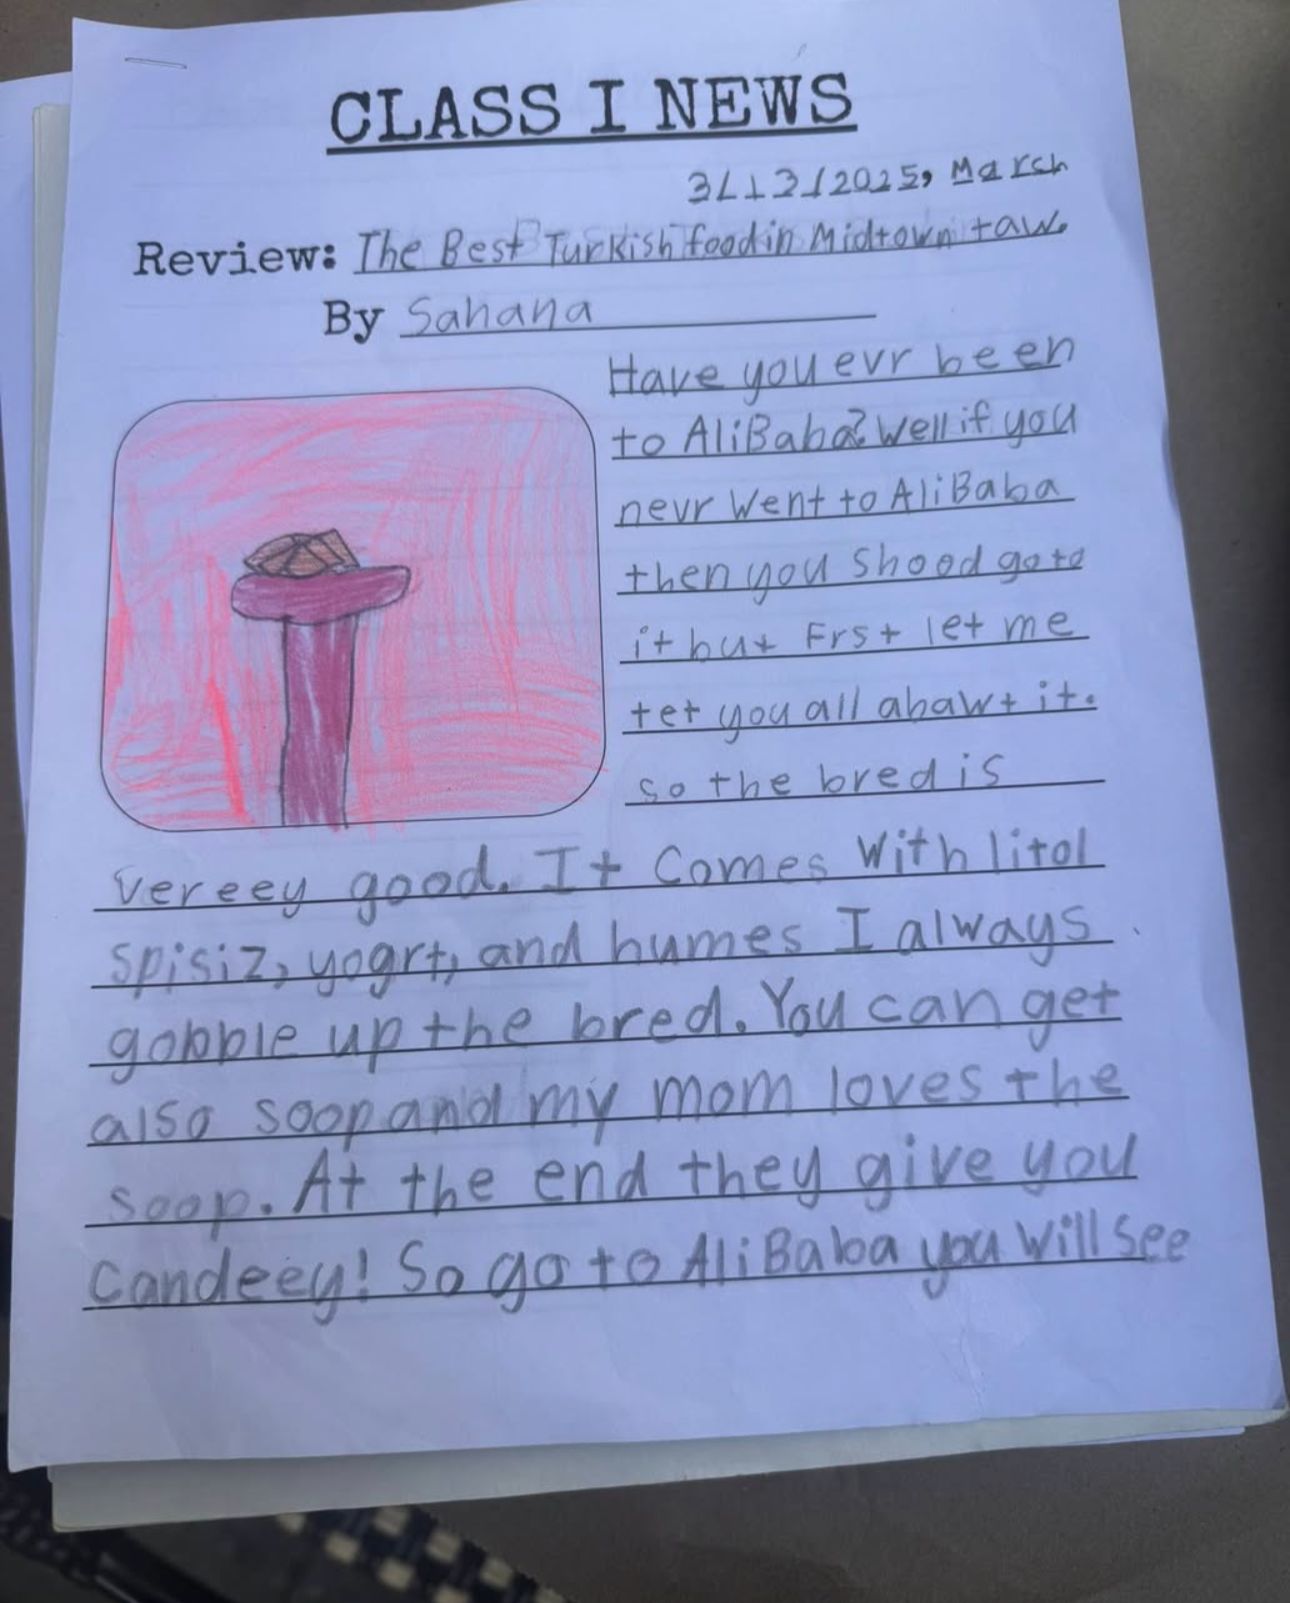 CLASS I NEWS
3/13/2025, March
Review: The Best Turkish food in Midtown taw.
By Sahana
Have you evr been
to AliBaba? Well if you
nevr Went to AliBaba
then you Shood go to
it but Frst let me
tet you all abawt it.
so the bred is
vereey good. It Comes With litol
spisiz, yogrt, and humes I always
gobble up the bred. You can get
also soop and my mom loves the
soop. At the end they give you
Candeey! So go to AliBaba you Will see